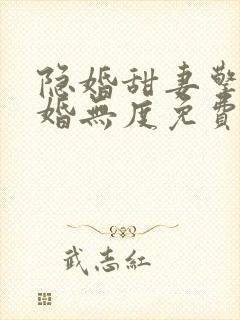 隐婚甜妻擎
婚無度免費
武志紅